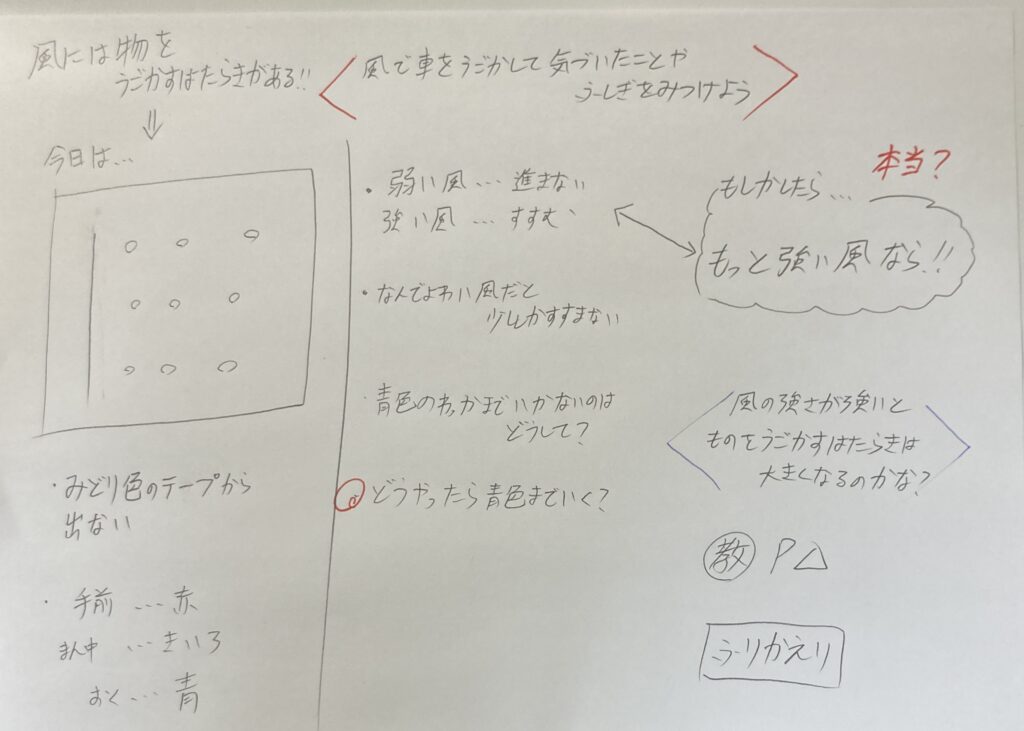 風には物を
うごかすはたらきがある!!
⇓
今日は…
・みどり色のテープから
出ない
・手前 … 赤
まん中 … きいろ
おく … 青
風で車をうごかして気づいたことや
ふしぎをみつけよう
・弱い風 … 進まない
強い風 … すすむ
・なんでよわい風だと
少ししかすすまない
・青色のわっかまでいかないのは
どうして?
どうやったら青色までいく?
本当?
もしかしたら…
もっと強い風なら!!
風の強さが強いと
ものをうごかすはたらきは
大きくなるのかな?
教 P△
ふりかえり